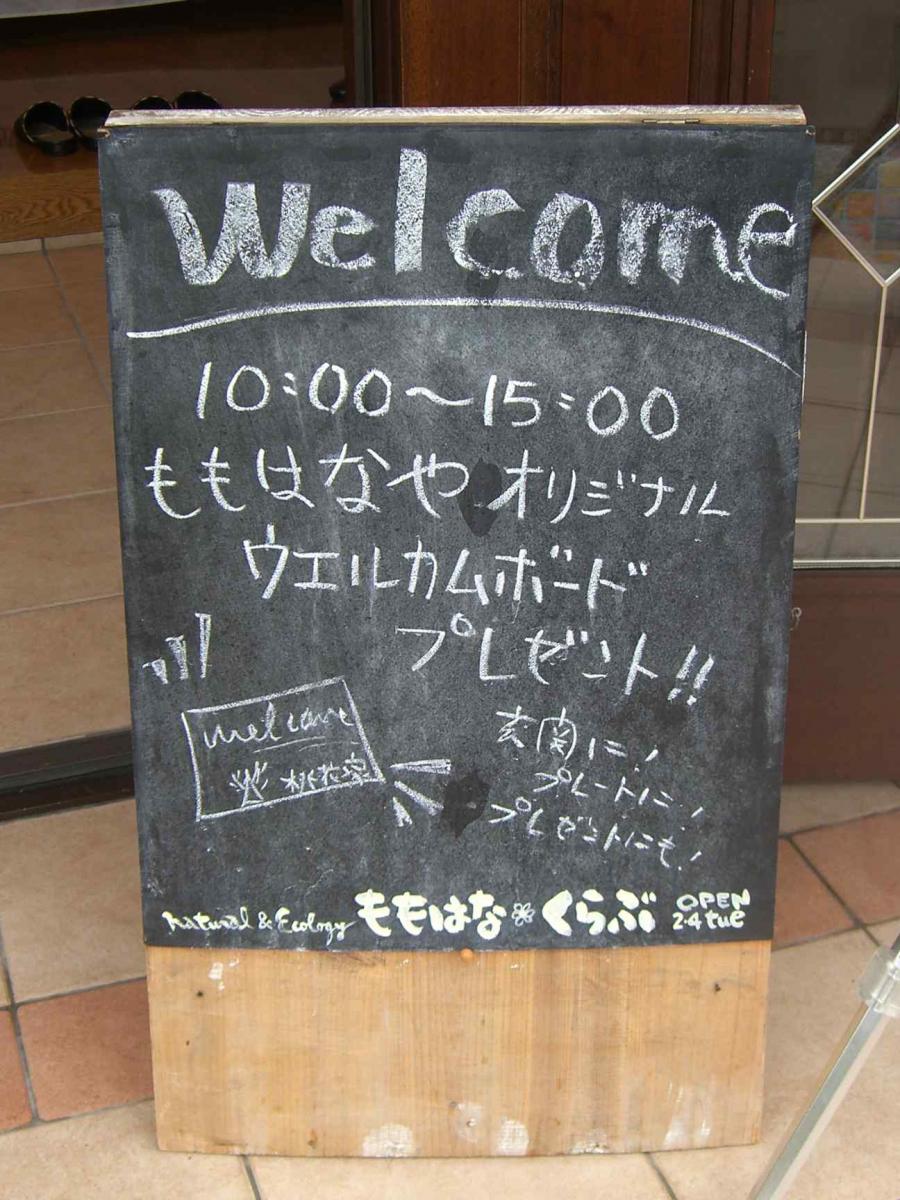 welcome
10:00〜15:00
ももはなや オリジナル
ウエルカムボード
プレゼント!!
welcome
桃花家
玄関に!
プレートに!
プレゼントにも!
Natural & Ecology ももはな くらぶ OPEN
2・4 tue